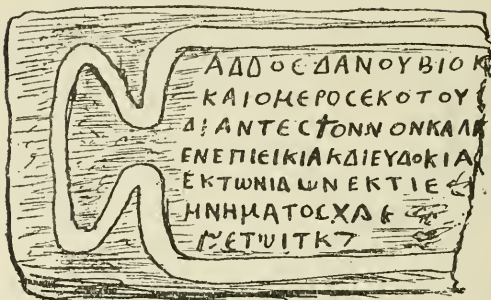 ΑΔΔΟϹΔΑΝΟΥΒΙΟΚ
ΚΑΙΟΜΕΡΟϹΕΚΟΤΟΥ
ΔΙΑΝΤΕϹΤΟΝΝΟΝΚΑΛΚ
ΕΝΕΠΙΕΙΚΙΑΚΔΙΕΥΔΟΚΙΑϹ
ΕΚΤΩΝΙΔΩΝΕΚΤΙΕ
ΜΗΝΗΜΑΤΟϹΧΔΕ